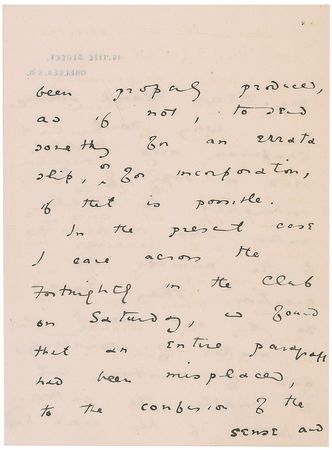 16, TITE STREET,
CHELSEA. S.W.
been properly produced,
as if not, to send
something for an errata
slip, or for incorporation,
if that is possible.
In the present case
I came across the
Fortnightly in the Club
on Saturday, & found
that an entire paragraph
had been misplaced,
to the confusion of the
sense and